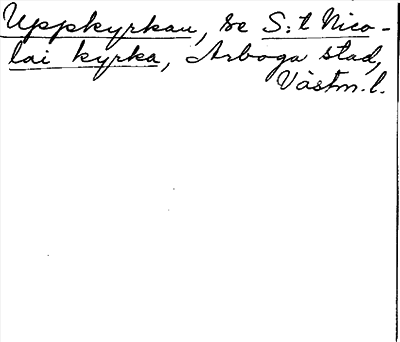 Uppkyrkan, se S:t Nico-
lai kyrka, Arboga stad,
Västm.l.